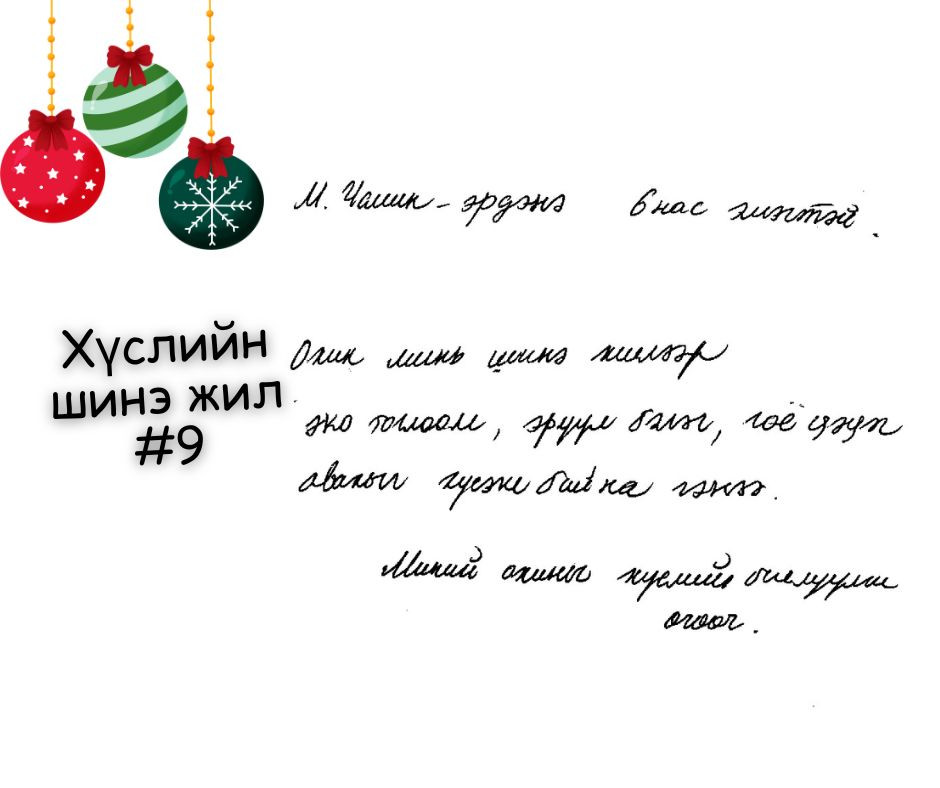 М. Чамин-эрдэнэ 6 нас эмэгтэй.
Хүслийн
шинэ жил
#9
Охин минь шинэ жилээр
эко тоглоом, эрүүл бэлэг, гоё цэцэг
авахыг хүсэж байна гэнээ.
Миний охины хүслийг биелүүлж
өгөөч.